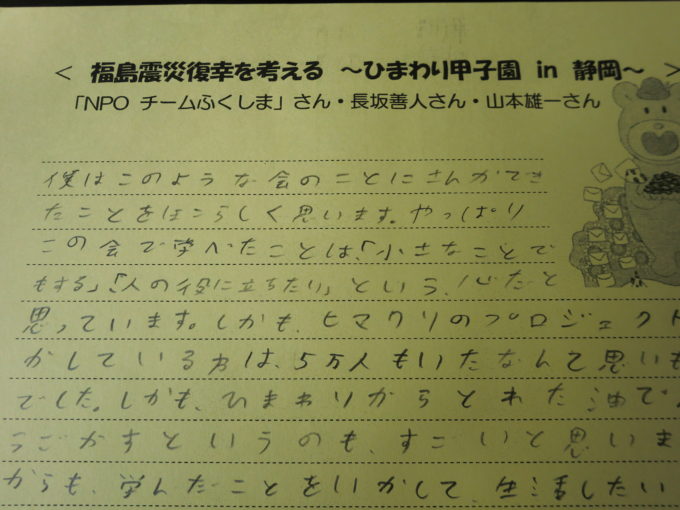 < 福島震災復幸を考える ～ひまわり甲子園 in 静岡～ >
「NPO チームふくしま」さん・長坂善人さん・山本雄一さん
僕はこのような会のことにさんかでき
たことをほこらしく思います。やっぱり
この会で学べたことは、「小さなことで
もする」、「人の役に立ちたり」という、心だと
思っています。しかも、ヒマワリのプロジェクト
かしている方は、5万人もいたなんて思いも
でした。しかも、ひまわりからとれた油で
うごかすというのも、すごいと思いま
からも、学んだことをいかして、生活したい